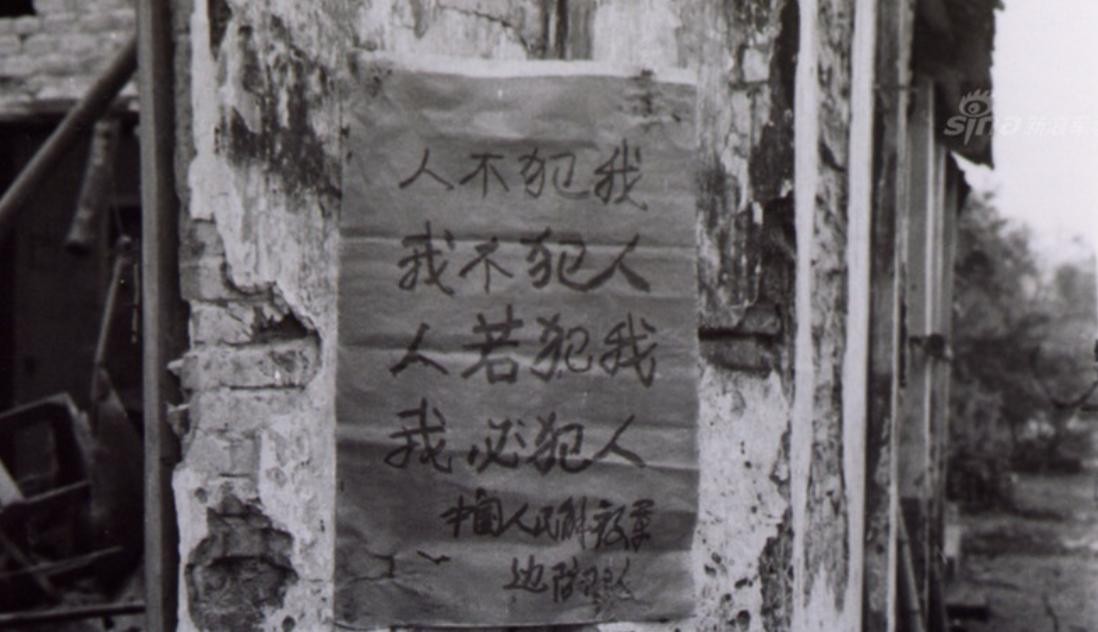 人不犯我
我不犯人
人若犯我
我必犯人
中国人民解放军
边防部队
sina 新浪军